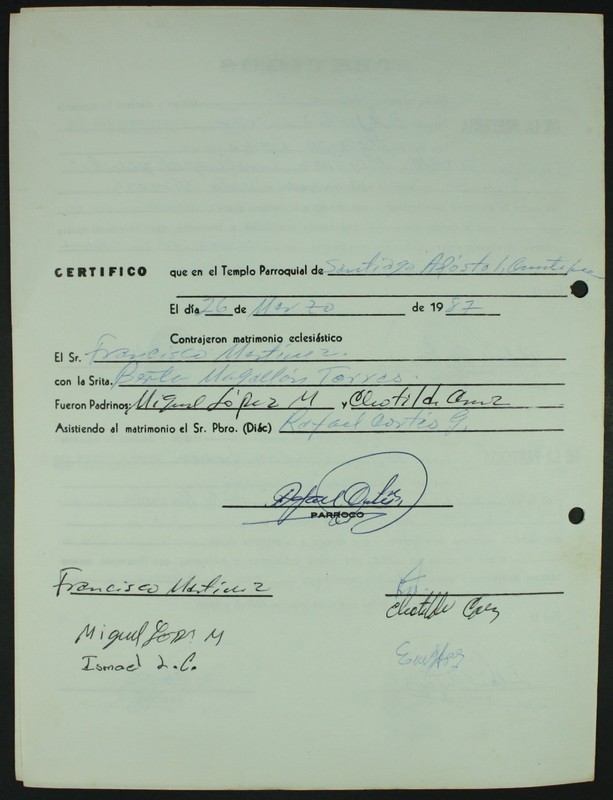 CERTIFICO que en el Templo Parroquial de Santiago Apóstol,
El día 26 de Marzo de 1987
Contrajeron matrimonio eclesiástico
El Sr. Francisco Martínez.
con la Srita. Berta Magallón Torres.
Fueron Padrinos: Miguel López M y Clotilde Cruz
Asistiendo al matrimonio el Sr. Pbro. (Diác) Rafael Cortés G.
PARROCO
Francisco Martinez
Clotilde Cruz
Miguel Lopz M
Ismael L.C.